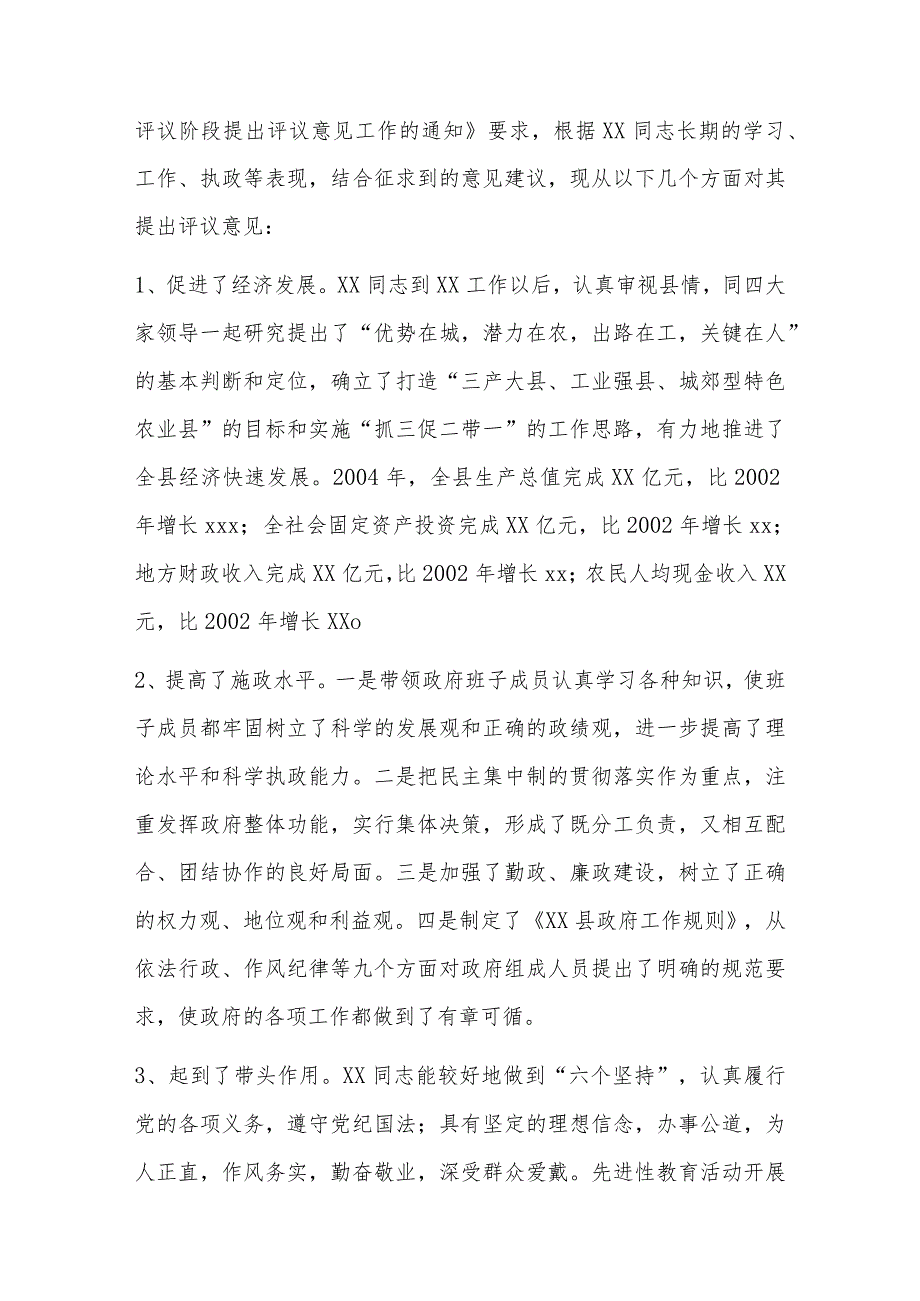 评议阶段提出评议意见工作的通知》要求，根据XX同志长期的学习、
工作、执政等表现，结合征求到的意见建议，现从以下几个方面对其
提出评议意见：
1、促进了经济发展。XX同志到XX工作以后，认真审视县情，同四大
家领导一起研究提出了“优势在城，潜力在农，出路在工，关键在人”
的基本判断和定位，确立了打造“三产大县、工业强县、城郊型特色
农业县”的目标和实施“抓三促二带一”的工作思路，有力地推进了
全县经济快速发展。2004年，全县生产总值完成XX亿元，比2002
年增长xxx；全社会固定资产投资完成XX亿元，比2002年增长xx；
地方财政收入完成XX亿元，比2002年增长xx；农民人均现金收入XX
元，比2002年增长XXo
2、提高了施政水平。一是带领政府班子成员认真学习各种知识，使班
子成员都牢固树立了科学的发展观和正确的政绩观，进一步提高了理
论水平和科学执政能力。二是把民主集中制的贯彻落实作为重点，注
重发挥政府整体功能，实行集体决策，形成了既分工负责，又相互配
合、团结协作的良好局面。三是加强了勤政、廉政建设，树立了正确
的权力观、地位观和利益观。四是制定了《XX县政府工作规则》，从
依法行政、作风纪律等九个方面对政府组成人员提出了明确的规范要
求，使政府的各项工作都做到了有章可循。
3、起到了带头作用。XX同志能较好地做到“六个坚持”，认真履行
党的各项义务，遵守党纪国法；具有坚定的理想信念，办事公道，为
人正直，作风务实，勤奋敬业，深受群众爱戴。先进性教育活动开展